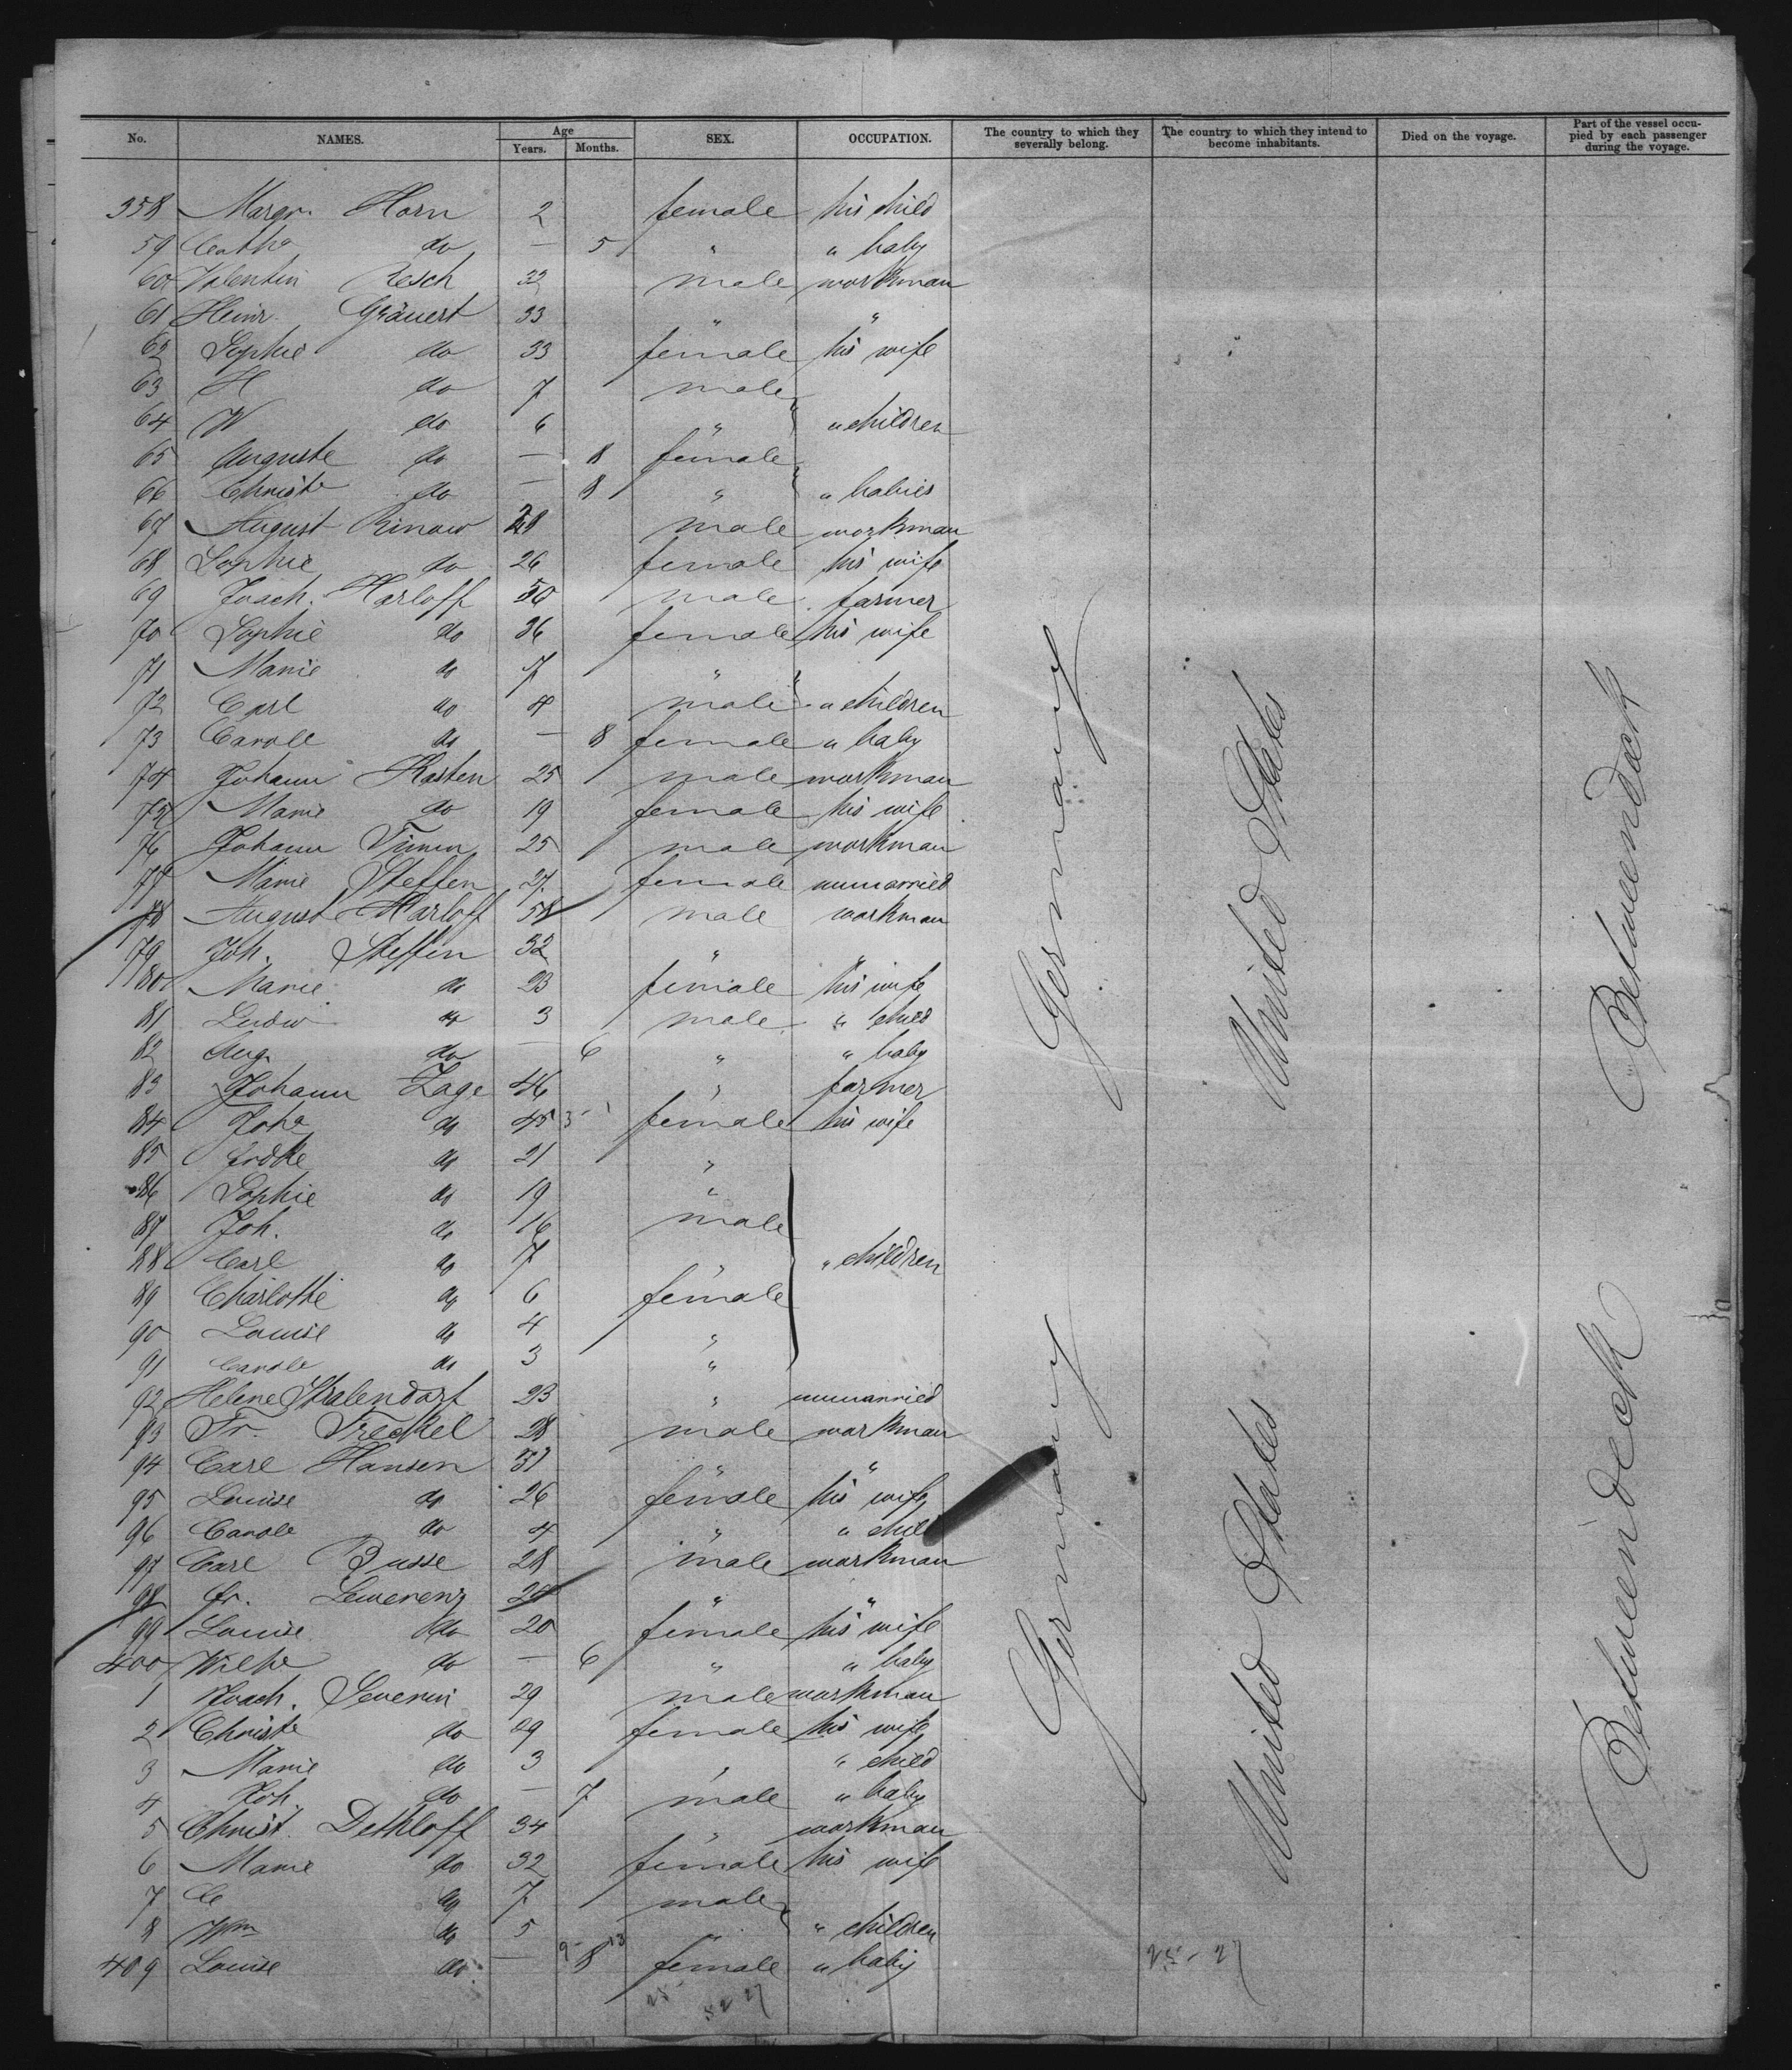 No. NAMES. Age Years. Months. SEX. OCCUPATION. The country to which they severally belong. The country to which they intend to become inhabitants. Died on the voyage. Part of the vessel occupied by each passenger during the voyage.
358 Margr. Horn 2 female his child
59 Cathe do — 5 " " baby
60 Valentin Resch 32 male workman
61 Heinr. Gräuert 33 " "
62 Sophie do 33 female his wife
63 H do 7 male
64 W do 6 " " children
65 Auguste do — 8 female
66 Christe do — 8 " " babies
67 August Rinow 28 male workman
68 Sophie do 26 female his wife
69 Joach. Harloff 50 male farmer
70 Sophie do 36 female his wife
71 Marie do 7 "
72 Carl do 4 male " children
73 Carole do — 8 female " baby
74 Johann Karsten 25 male workman
75 Marie do 19 female his wife
76 Johann Timm 25 male workman
77 Marie Steffen 27 female unmarried
78 August Harloff 58 male workman
79 Joh. Steffen 32 " "
80 Marie do 23 female his wife
81 Ludw do 3 male " child
82 Aug. do — 6 " " baby
83 Johann Zage 46 " farmer
84 Johe do 45 female his wife
85 Fredke do 21 "
86 Sophie do 19 "
87 Joh. do 16 male
88 Carl do 7 " " children
89 Charlotte do 6 female
90 Louise do 4 "
91 Carole do 3 "
92 Helene Stralendorf 23 " unmarried
93 Fr. Freckel 28 male workman
94 Carl Hansen 31 " "
95 Louise do 26 female his wife
96 Carole do 4 " " child
97 Carl Busse 28 male workman
98 Fr. Lewerenz 24 " "
99 Louise do 20 female his wife
400 Wilhe do — 6 " " baby
1 Joach. Severin 29 male workman
2 Christe do 29 female his wife
3 Marie do 3 " " child
4 Joh. do — 7 male " baby
5 Christ. Dethloff 34 " workman
6 Marie do 32 female his wife
7 C do 7 male
8 Wm do 5 " " children
409 Louise do — 8 female " baby
Germany United States Betweendeck
Germany United States Betweendeck
25 - 27